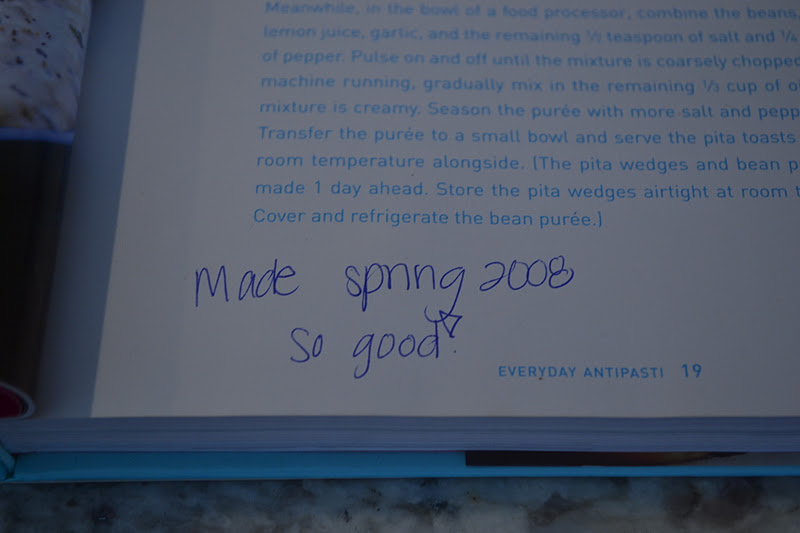 Meanwhile, in the bowl of a food processor, combine the beans,
lemon juice, garlic, and the remaining ½ teaspoon of salt and ¼
of pepper. Pulse on and off until the mixture is coarsely chopped
machine running, gradually mix in the remaining ⅓ cup of
mixture is creamy. Season the purée with more salt and
Transfer the purée to a small bowl and serve the pita toasts
room temperature alongside. (The pita wedges and bean
made 1 day ahead. Store the pita wedges airtight at room
Cover and refrigerate the bean purée.)
Made spring 2008
So good!
EVERYDAY ANTIPASTI 19